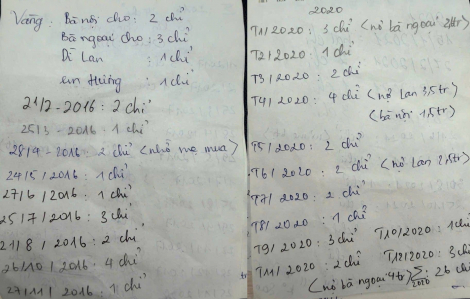 Vàng: Bà nội cho : 2 chỉ
Bà ngoại cho : 3 chỉ
Dì Lan : 1 chỉ
em Hương : 1 chỉ
21/2 - 2016 : 2 chỉ
25/3 - 2016 : 1 chỉ
28/4 - 2016 : 2 chỉ (nhờ mẹ mua)
24/5/2016 : 1 chỉ
27/6/2016 : 1 chỉ
25/7/2016 : 3 chỉ
21/8/2016 : 2 chỉ
26/10/2016 : 4 chỉ
27/11/2016 : 1 chỉ
2020
T1/2020 : 3 chỉ (nợ bà ngoại 2tr)
T2/2020 : 1 chỉ
T3/2020 : 2 chỉ
T4/2020 : 4 chỉ (nợ lan 3,5tr)
(bà nội 15tr)
T5/2020 : 2 chỉ
T6/2020 : 2 chỉ (nợ lan 2,5tr)
T7/2020 : 2 chỉ
T8/2020 : 1 chỉ
T9/2020 : 3 chỉ T10/2020 : 1 chỉ
T11/2020 : 2 chỉ T12/2020 : 3 chỉ
(nợ bà ngoại 4tr) Σ 2020 : 26 chỉ